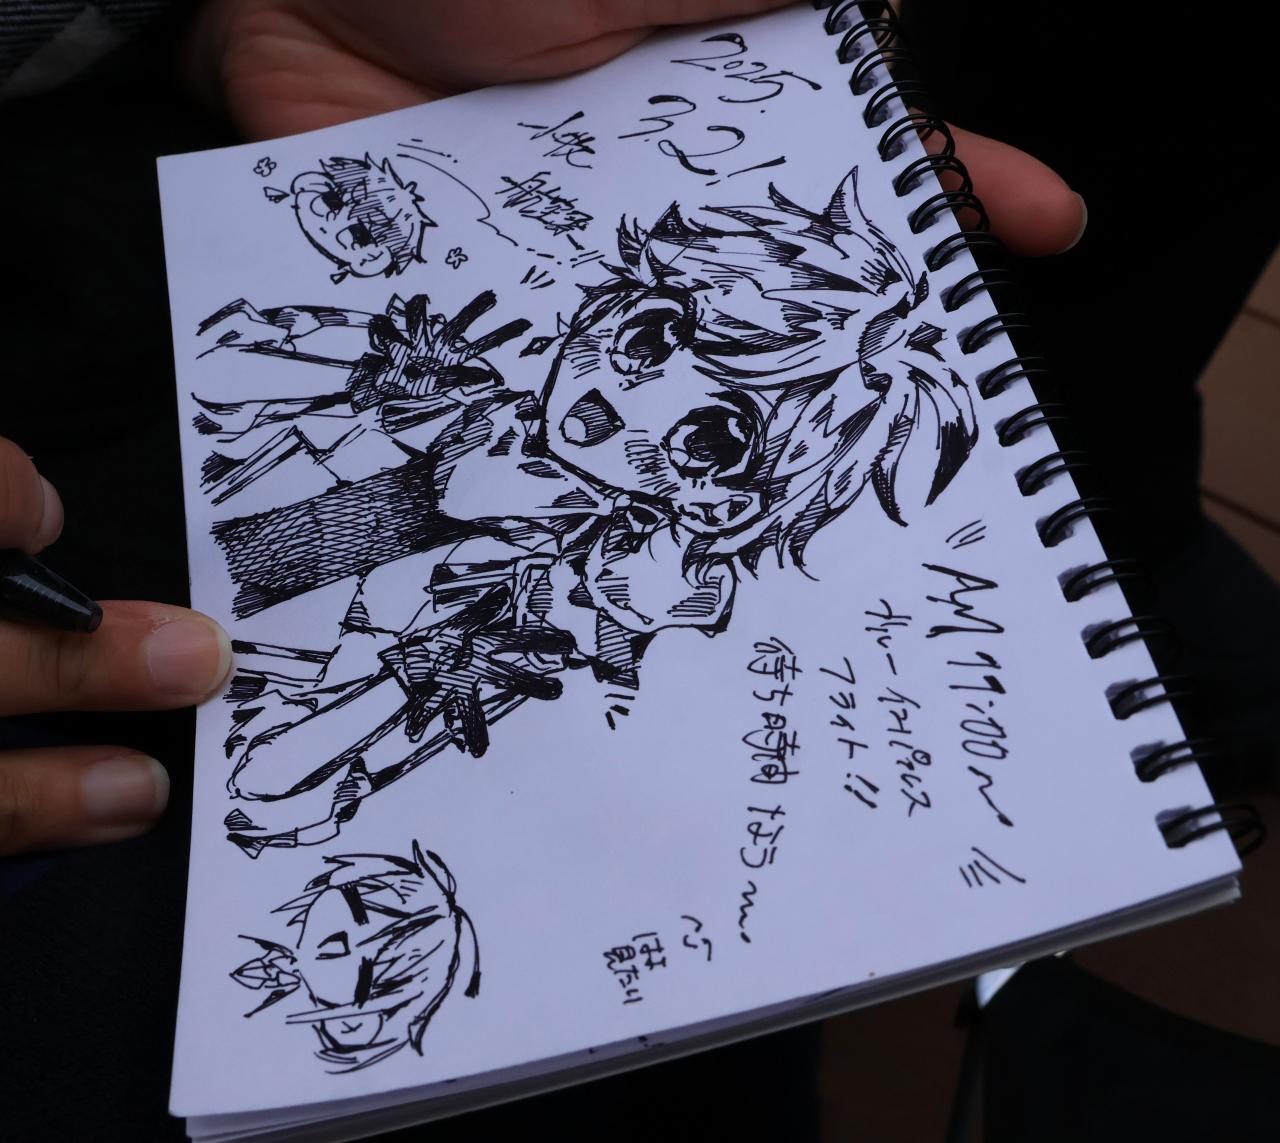 2025.
3.2!
小松
航空祭
AM 11:00〜
ブルーインパルス
フライト!!
待ち時間なう〜
はよ
見たい